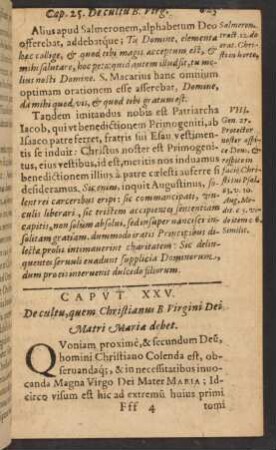 Cap. 25. De cultu B. Virg.
Alius apud Salmeronem, alphabetum Deo
offerebat, addebatque; Tu Domine, elementa
hæc collige, & quod tibi magis acceptum est, &
mihi salutare, hoc precor
lius nosti Domine. S. Macarius hanc omnium
optimam orationem esse asserebat, Domine,
da mihi quod vis, & quod tibi gratum est.
Tandem imitandus nobis est Patriarcha
Iacob, qui vt benedictionem Primogeniti, ab
Isaaco patre ferret, fratris sui Esau vestimen-
tis se induit: Christus noster est Primogeni-
tus, eius vestibus, id est, meritis nos induamus
benedictionem illius à patre cælesti auferre si
desideramus. Sic enim, inquit Augustinus, so-
lent rei carceribus eripi: sic commancipati, vin-
culis liberari, sic tristem accipientes sententiam
capitis, non solum absolui, sed insuper nancisci in-
solitam gratiam, dummodo orati Principibus di-
lecta prolis intimauerint charitatem: Sic delin-
quentes seruuli euadunt supplicia Dominorum,
dum pro eis interuenit dulcedo filiorum.
Salmeron.
tract. 12. de
orat. Chri-
sti in horto,
VIII.
Gen. 27.
Protector
noster aspi-
ce Deus; &
respice in
faciē Chri-
sti tui Psal.
83. v. 10.
Aug. Me-
dit. c. 5. vi-
de item c. 6.
Simile.
CAPVT XXV.
De cultu, quem Christianus B. Virgini Dei
Matri Maria debet.
QVoniam proximè, & secundum Deū,
homini Christiano Colenda est, ob-
seruandaq́;, & in necessitatibus inuo-
canda Magna Virgo Dei Mater MARIA; Id-
circo visum est hic ad extremū huius primi
Fff 4 tomi